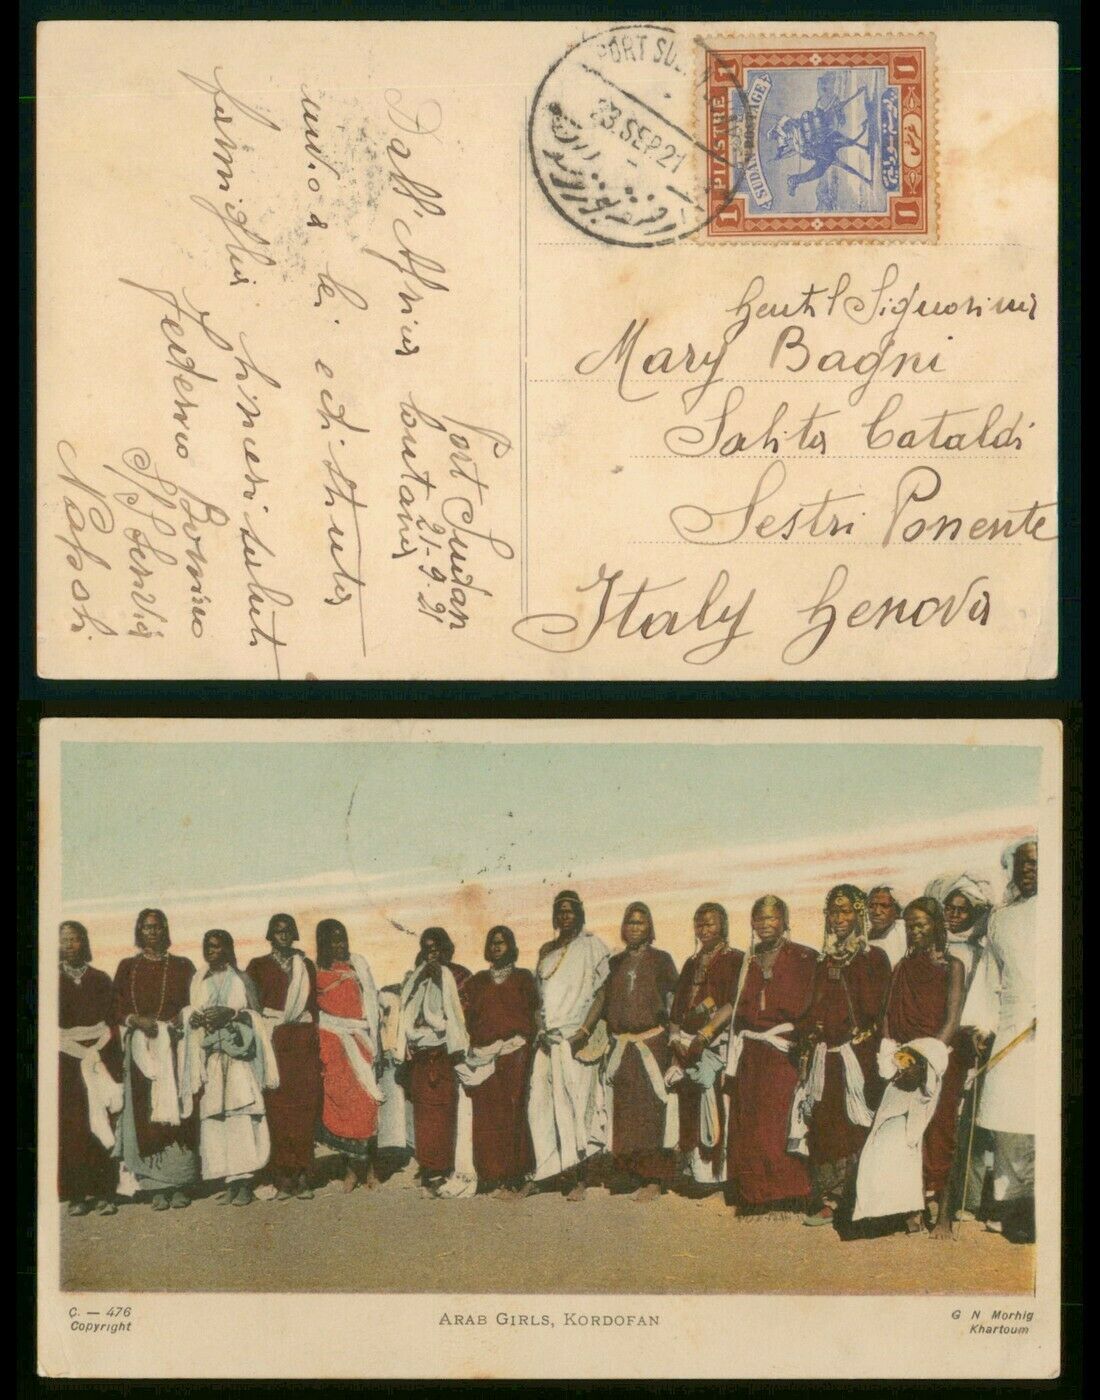 PORT SU
23.SEP.21
PIASTRE
SUDAN POSTAGE
1
1
1
1
Gentil Signorina
Mary Bagni
Salita Cataldi
Sestri Ponente
Italy Genova
Port Sudan
21-9-21
Dall'Africa lontana
di
famiglia sinceri saluti
Federico
Napoli
C. — 476
Copyright
ARAB GIRLS, KORDOFAN
G N Morhig
Khartoum